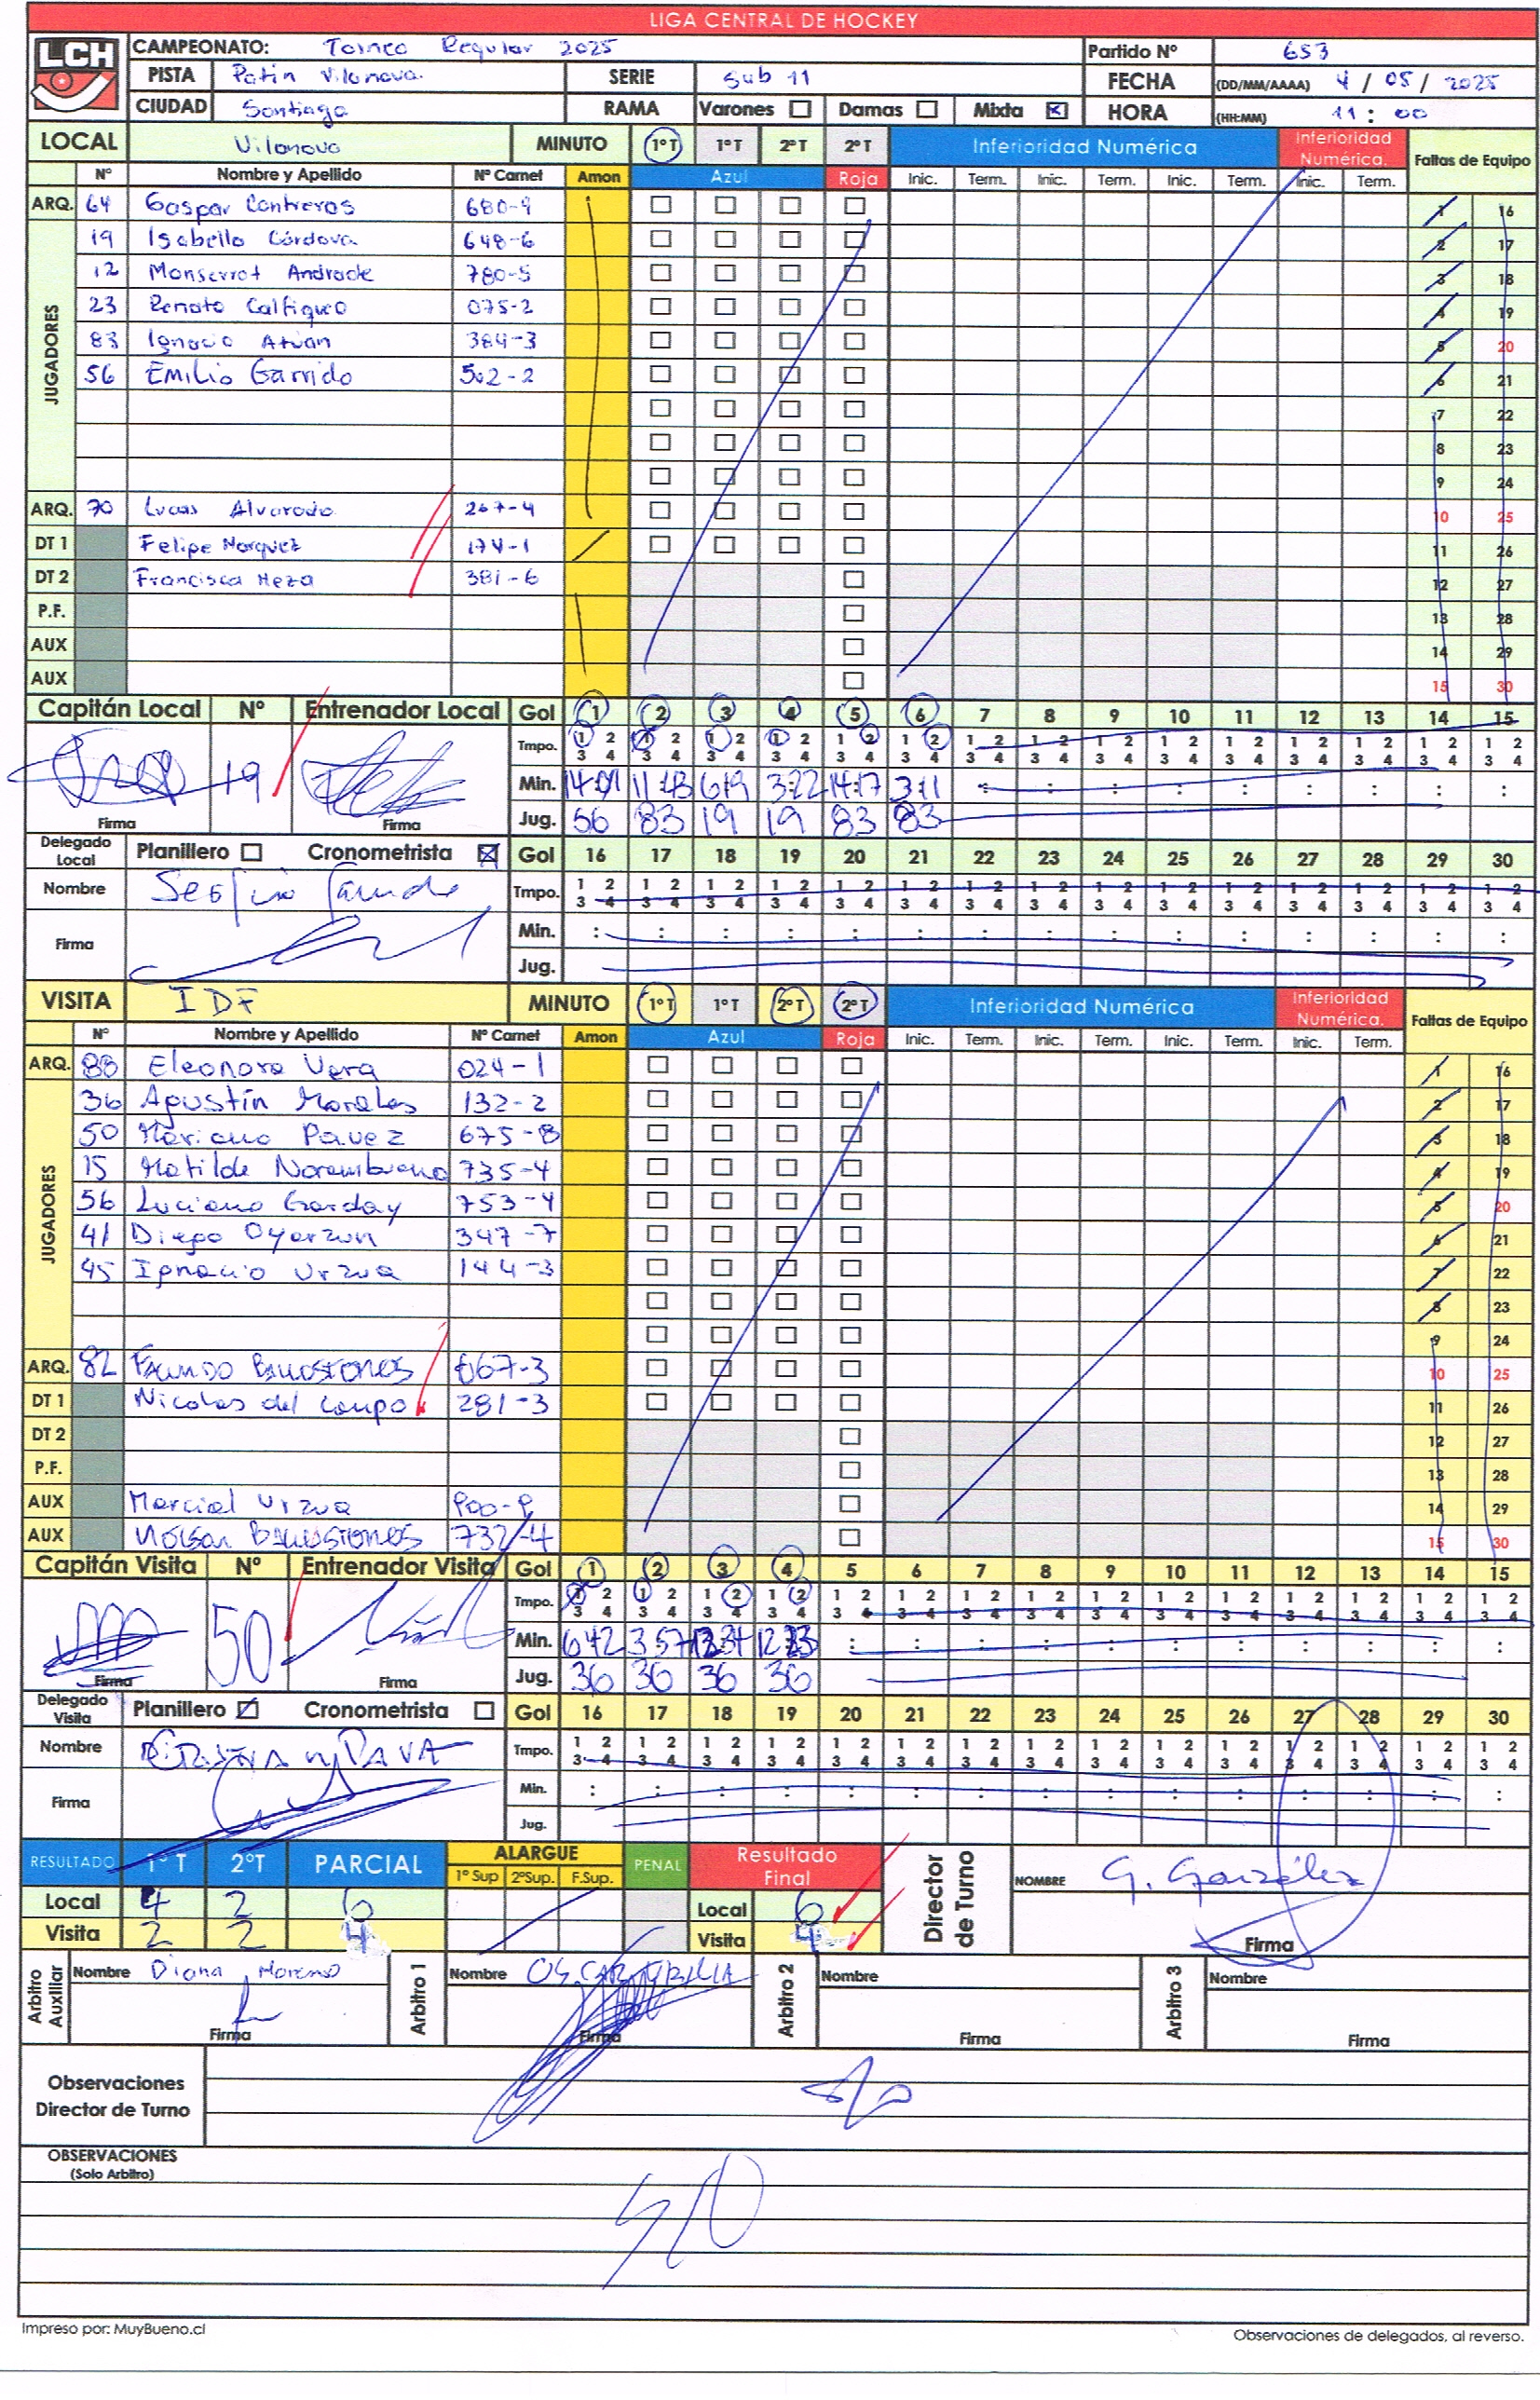 LIGA CENTRAL DE HOCKEY
LCH
CAMPEONATO: Torneo Regular 2025 Partido Nº 653
PISTA Patin Vilanova SERIE Sub 11 FECHA (DD/MM/AAAA) 4 / 05 / 2025
CIUDAD Santiago RAMA Varones Damas Mixta HORA (HH:MM) 11 : 00
LOCAL Vilanova MINUTO 1ºT 1ºT 2ºT 2ºT Inferioridad Numérica Inferioridad Numérica. Faltas de Equipo
Nº Nombre y Apellido Nº Carnet Amon Azul Roja Inic. Term. Inic. Term. Inic. Term. Inic. Term.
ARQ. 64 Gaspar Contreras 680-9 1 16
JUGADORES
19 Isabella Córdova 648-6 2 17
12 Monserrat Andrade 780-5 3 18
23 Renato Calfiqueo 075-2 4 19
83 Ignacio Atuan 384-3 5 20
56 Emilio Garrido 502-2 6 21
7 22
8 23
9 24
ARQ. 70 Lucas Alvarado 267-4 10 25
DT 1 Felipe Marquez 174-1 11 26
DT 2 Francisca Meza 381-6 12 27
P.F. 13 28
AUX 14 29
AUX 15 30
Capitán Local Nº Entrenador Local Gol 1 2 3 4 5 6 7 8 9 10 11 12 13 14 15
Tmpo. 1 2 3 4 1 2 3 4 1 2 3 4 1 2 3 4 1 2 3 4 1 2 3 4 1 2 3 4 1 2 3 4 1 2 3 4 1 2 3 4 1 2 3 4 1 2 3 4 1 2 3 4 1 2 3 4 1 2 3 4
19 Min. 14:01 11:43 6:19 3:22 14:17 3:11 : : : : : : : : :
Firma Firma Jug. 56 83 19 19 83 83
Delegado Local Planillero Cronometrista Gol 16 17 18 19 20 21 22 23 24 25 26 27 28 29 30
Nombre Tmpo. 1 2 3 4 1 2 3 4 1 2 3 4 1 2 3 4 1 2 3 4 1 2 3 4 1 2 3 4 1 2 3 4 1 2 3 4 1 2 3 4 1 2 3 4 1 2 3 4 1 2 3 4 1 2 3 4 1 2 3 4
Firma Min. : : : : : : : : : : : : : : :
Jug.
VISITA IDF MINUTO 1ºT 1ºT 2ºT 2ºT Inferioridad Numérica Inferioridad Numérica. Faltas de Equipo
Nº Nombre y Apellido Nº Carnet Amon Azul Roja Inic. Term. Inic. Term. Inic. Term. Inic. Term.
ARQ. 88 Eleonora Vera 024-1 1 16
JUGADORES
36 Agustín Morales 132-2 2 17
50 Mariano Pavez 675-8 3 18
15 Matilde Norambuena 735-4 4 19
56 Luciano Garday 753-4 5 20
41 Diego Oyarzun 347-7 6 21
45 Ignacio Urzua 144-3 7 22
8 23
9 24
ARQ. 82 Facundo Ballestones 067-3 10 25
DT 1 Nicolas del Campo 281-3 11 26
DT 2 12 27
P.F. 13 28
AUX Marcial Urzua 900-9 14 29
AUX Nelson Ballestones 732-4 15 30
Capitán Visita Nº Entrenador Visita Gol 1 2 3 4 5 6 7 8 9 10 11 12 13 14 15
Tmpo. 1 2 3 4 1 2 3 4 1 2 3 4 1 2 3 4 1 2 3 4 1 2 3 4 1 2 3 4 1 2 3 4 1 2 3 4 1 2 3 4 1 2 3 4 1 2 3 4 1 2 3 4 1 2 3 4 1 2 3 4
50 Min. 6:42 3:57 12:34 12:23 : : : : : : : : : : :
Firma Firma Jug. 36 36 36 36
Delegado Visita Planillero Cronometrista Gol 16 17 18 19 20 21 22 23 24 25 26 27 28 29 30
Nombre Tmpo. 1 2 3 4 1 2 3 4 1 2 3 4 1 2 3 4 1 2 3 4 1 2 3 4 1 2 3 4 1 2 3 4 1 2 3 4 1 2 3 4 1 2 3 4 1 2 3 4 1 2 3 4 1 2 3 4 1 2 3 4
Firma Min. : : : : : : : : : : : : : : :
Jug.
RESULTADO 1ºT 2ºT PARCIAL ALARGUE 1º Sup 2ºSup. F.Sup. PENAL Resultado Final Director de Turno NOMBRE G. González
Local 4 2 6 Local 6
Visita 2 2 4 Visita 4 Firma
Arbitro Auxiliar Nombre Diana Moreno Arbitro 1 Nombre Oscar Arbitro 2 Nombre Arbitro 3 Nombre
Firma Firma Firma Firma
Observaciones Director de Turno s/o
OBSERVACIONES (Solo Arbitro)
S/O
Impreso por: MuyBueno.cl Observaciones de delegados, al reverso.